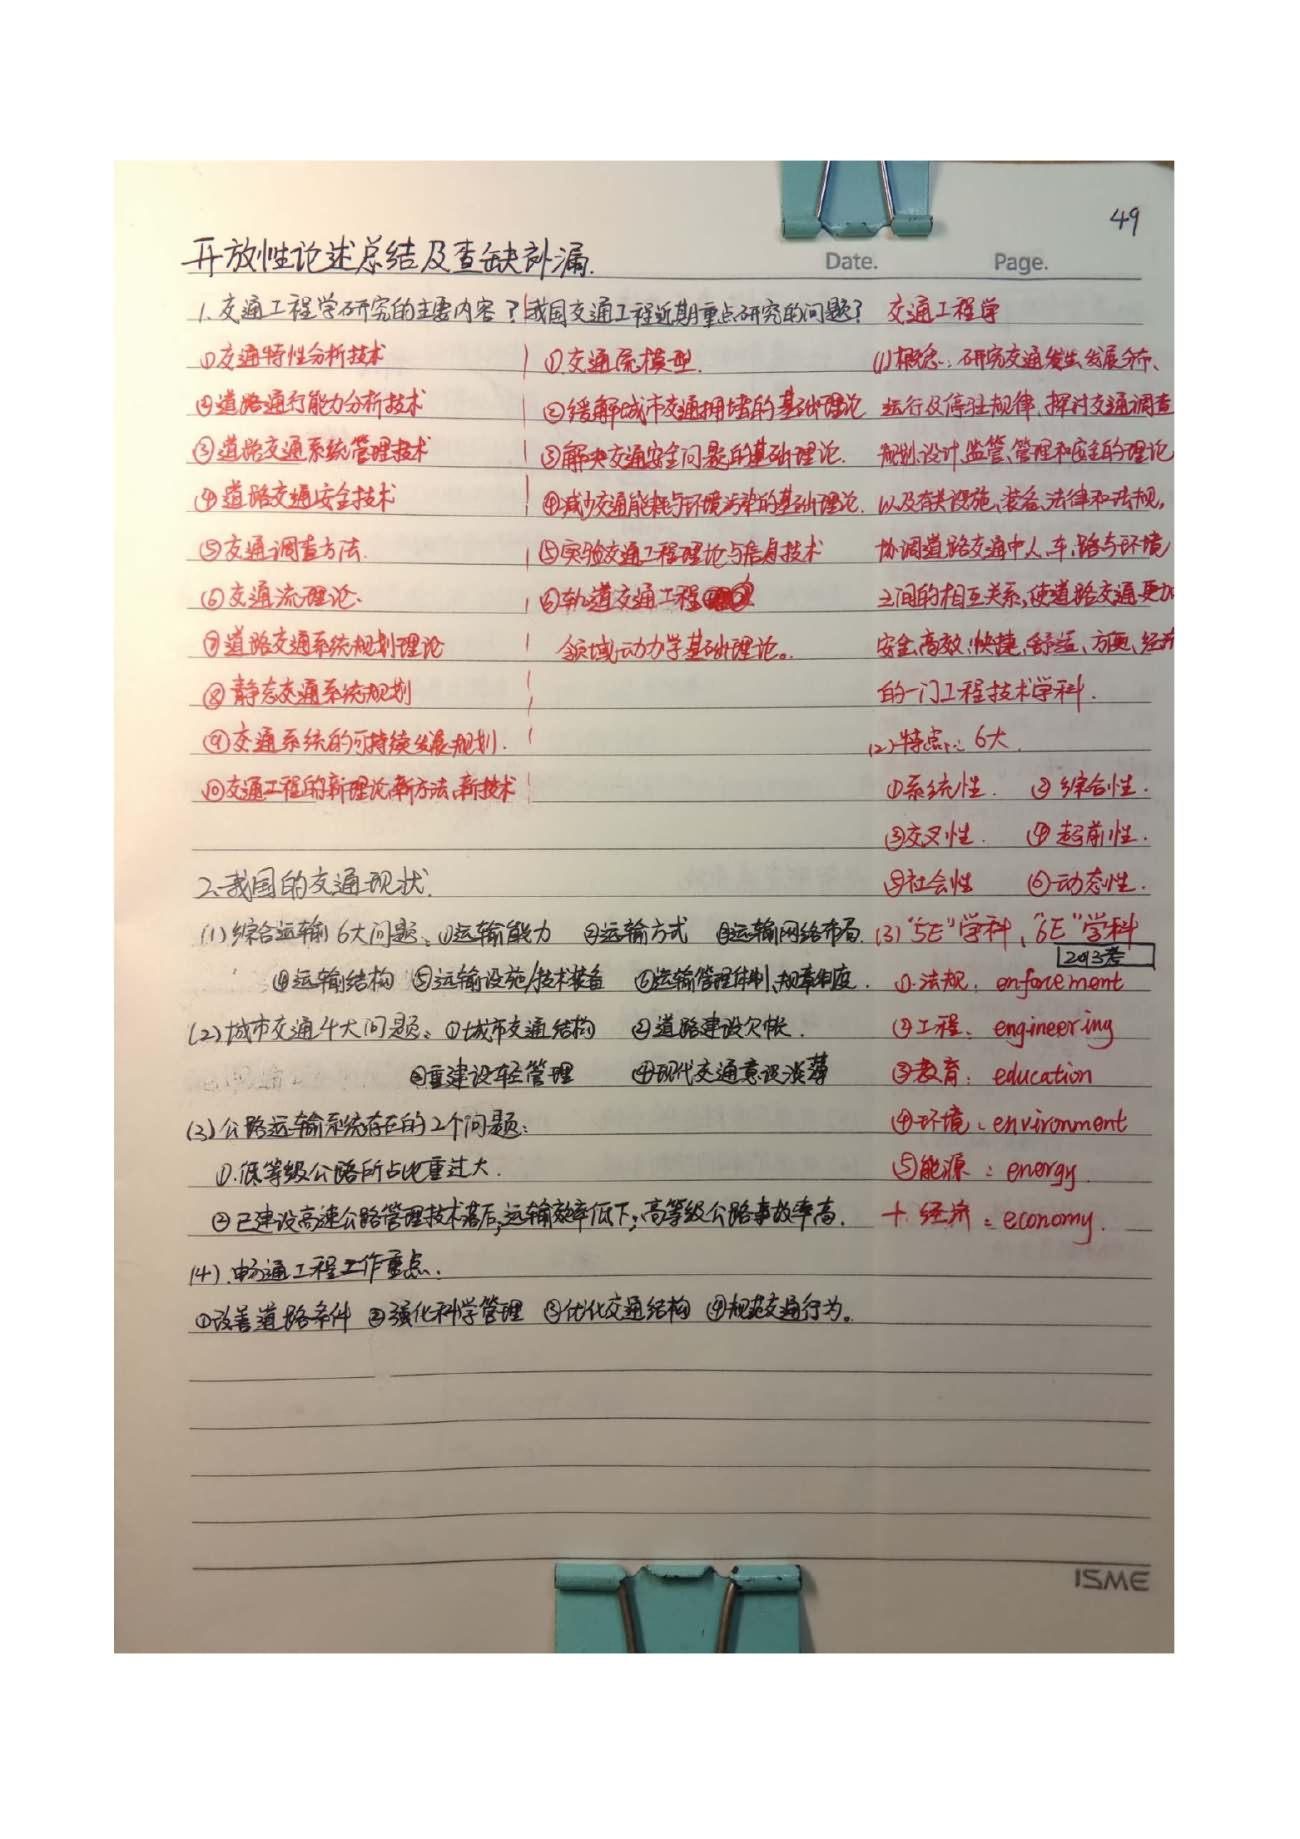 49
开放性论述总结及查缺补漏.
Date. Page.
1. 交通工程学研究的主要内容?
①交通特性分析技术
②道路通行能力分析技术
③道路交通系统管理技术
④道路交通安全技术
⑤交通调查方法.
⑥交通流理论.
⑦道路交通系统规划理论
⑧静态交通系统规划
⑨交通系统的可持续发展规划.
⑩交通工程的新理论、新方法、新技术
我国交通工程近期重点研究的问题?
①交通流模型.
②缓解城市交通拥堵的基础理论
③解决交通安全问题的基础理论.
④减少交通能耗与环境污染的基础理论.
⑤实验交通工程理论与信息技术
⑥轨道交通工程
领域动力学基础理论。
2. 我国的交通现状.
(1)综合运输6大问题: ①运输能力 ②运输方式 ③运输网络布局.
④运输结构 ⑤运输设施/技术装备 ⑥运输管理体制、规章制度.
(2)城市交通4大问题: ①城市交通结构 ②道路建设欠帐.
③重建设轻管理 ④现代交通意识淡薄
(3)公路运输系统存在的2个问题:
①.低等级公路所占比重过大.
②已建设高速公路管理技术落后,运输效率低下;高等级公路事故率高.
(4).畅通工程工作重点:
①改善道路条件 ②强化科学管理 ③优化交通结构 ④规范交通行为。
交通工程学
(1)概念: 研究交通发生、发展、分布、
运行及停驻规律,探讨交通调查
规划、设计、监管、管理和安全的理论
以及有关设施、装备、法律和法规,
协调道路交通中人、车、路与环境
之间的相互关系,使道路交通更加
安全、高效、快捷、舒适、方便、经济
的一门工程技术学科.
(2)特点: 6大.
①系统性. ②综合性.
③交叉性. ④超前性.
⑤社会性 ⑥动态性.
(3)"5E"学科、"6E"学科
2013考
①.法规: enforcement
②工程: engineering
③教育: education
④环境: environment
⑤能源: energy.
+ 经济: economy.
ISME